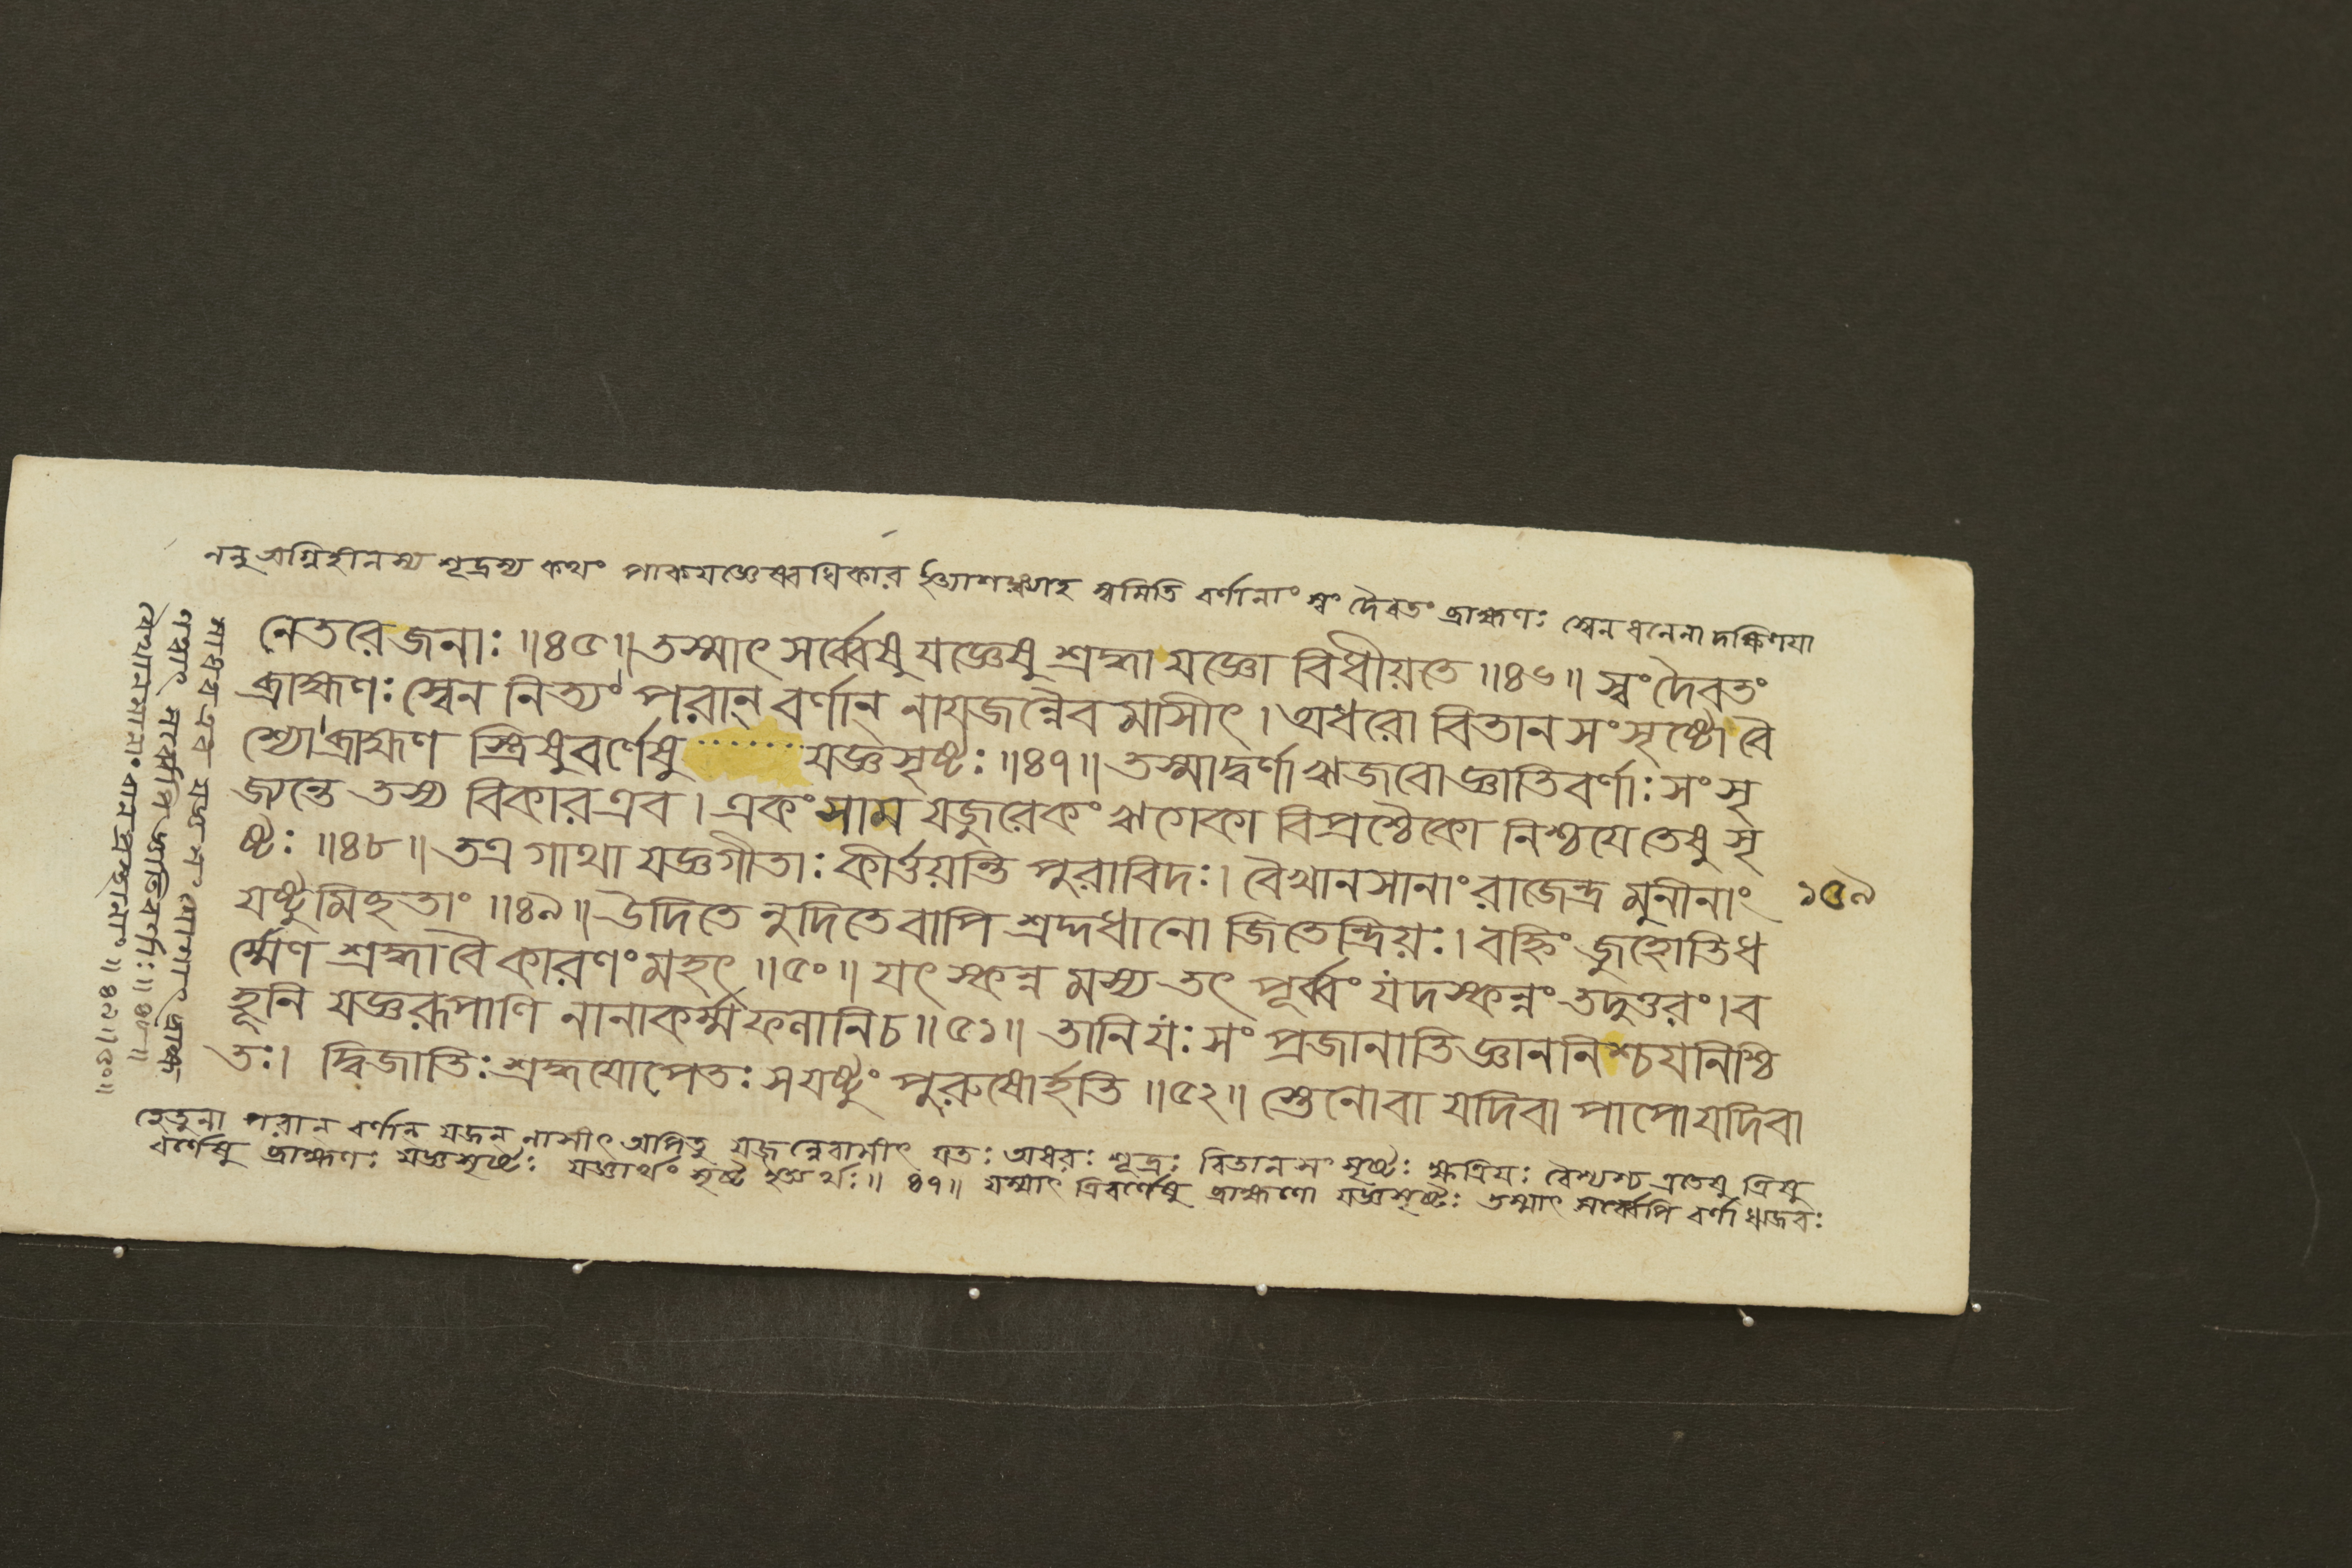 ননু অগ্নিহীনস্য শূদ্রস্য কথং পাকযজ্ঞেষ্বধিকার ইত্যাশঙ্ক্যাহ স্বমিতি বর্ণানাং স্বং দৈবতং ব্রাহ্মণঃ স্বেন ধনেনা দক্ষিণয়া
নেতরে জনাঃ ॥৪৫॥ তস্মাৎ সর্ব্বেষু যজ্ঞেষু শ্রদ্ধা যজ্ঞো বিধীয়তে ॥৪৬॥ স্বং দৈবতং
ব্রাহ্মণঃ স্বেন নিত্যং পরান্ বর্ণান্ নাযজন্নৈব মাসীৎ । অধরো বিতান সংসৃষ্টো বৈ
শ্যো ব্রাহ্মণ স্ত্রিষুবর্ণেষু ······· যজ্ঞসৃষ্টঃ ॥৪৭॥ তস্মাদ্বর্ণা ঋজবো জ্ঞাতিবর্ণাঃ সংসৃ
জ্যন্তে তস্য বিকার এব । একং সাম যজুরেকং ঋগেকা বিপ্রশ্চৈকো নিশ্চযে তেষু সৃ
ষ্টঃ ॥৪৮॥ তত্র গাথা যজ্ঞগীতাঃ কীর্ত্তয়ন্তি পুরাবিদঃ। বৈখানসানাং রাজেন্দ্র মুনীনাং
১৫৯
যষ্টুমিহতাং ॥৪৯॥ উদিতে নুদিতে বাপি শ্রদ্দধানো জিতেন্দ্রিয়ঃ। বহ্নিং জুহোতিধ
র্ম্মেণ শ্রদ্ধা বৈ কারণং মহৎ ॥৫০॥ যৎ স্কন্ন মস্য তৎ পূর্ব্বং যদস্কন্নং তদুত্তরং। ব
হূনি যজ্ঞরূপাণি নানাকর্ম্ম ফলানিচ ॥৫১॥ তানি যঃ সং প্রজানাতি জ্ঞাননিশ্চযনিশ্চি
তঃ। দ্বিজাতিঃ শ্রদ্ধযোপেতঃ সযষ্টুং পুরুষোর্হতি ॥৫২॥ স্তেনোবা যদিবা পাপো যদিবা
হেতুনা পরান বর্ণান যজন নাসীৎ অপিতু যজন্নেবাসীৎ যতঃ অধরঃ শূদ্রঃ বিতানসংসৃষ্টঃ ক্ষত্রিযঃ বৈশ্যশ্চ এতেষু ত্রিষু
বর্ণেষু ব্রাহ্মণঃ যজ্ঞসৃষ্টঃ যজ্ঞার্থং সৃষ্ট ইত্যর্থঃ॥ ৪৭॥ যস্মাৎ ত্রিবর্ণেষু ব্রাহ্মণো যজ্ঞসৃষ্টঃ তস্মাৎ সর্ব্বেপি বর্ণা ঋজবঃ